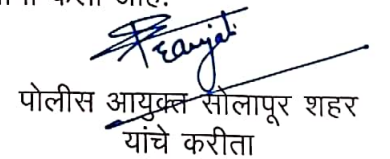 केला आहे.
पोलीस आयुक्त सोलापूर शहर
यांचे करीता